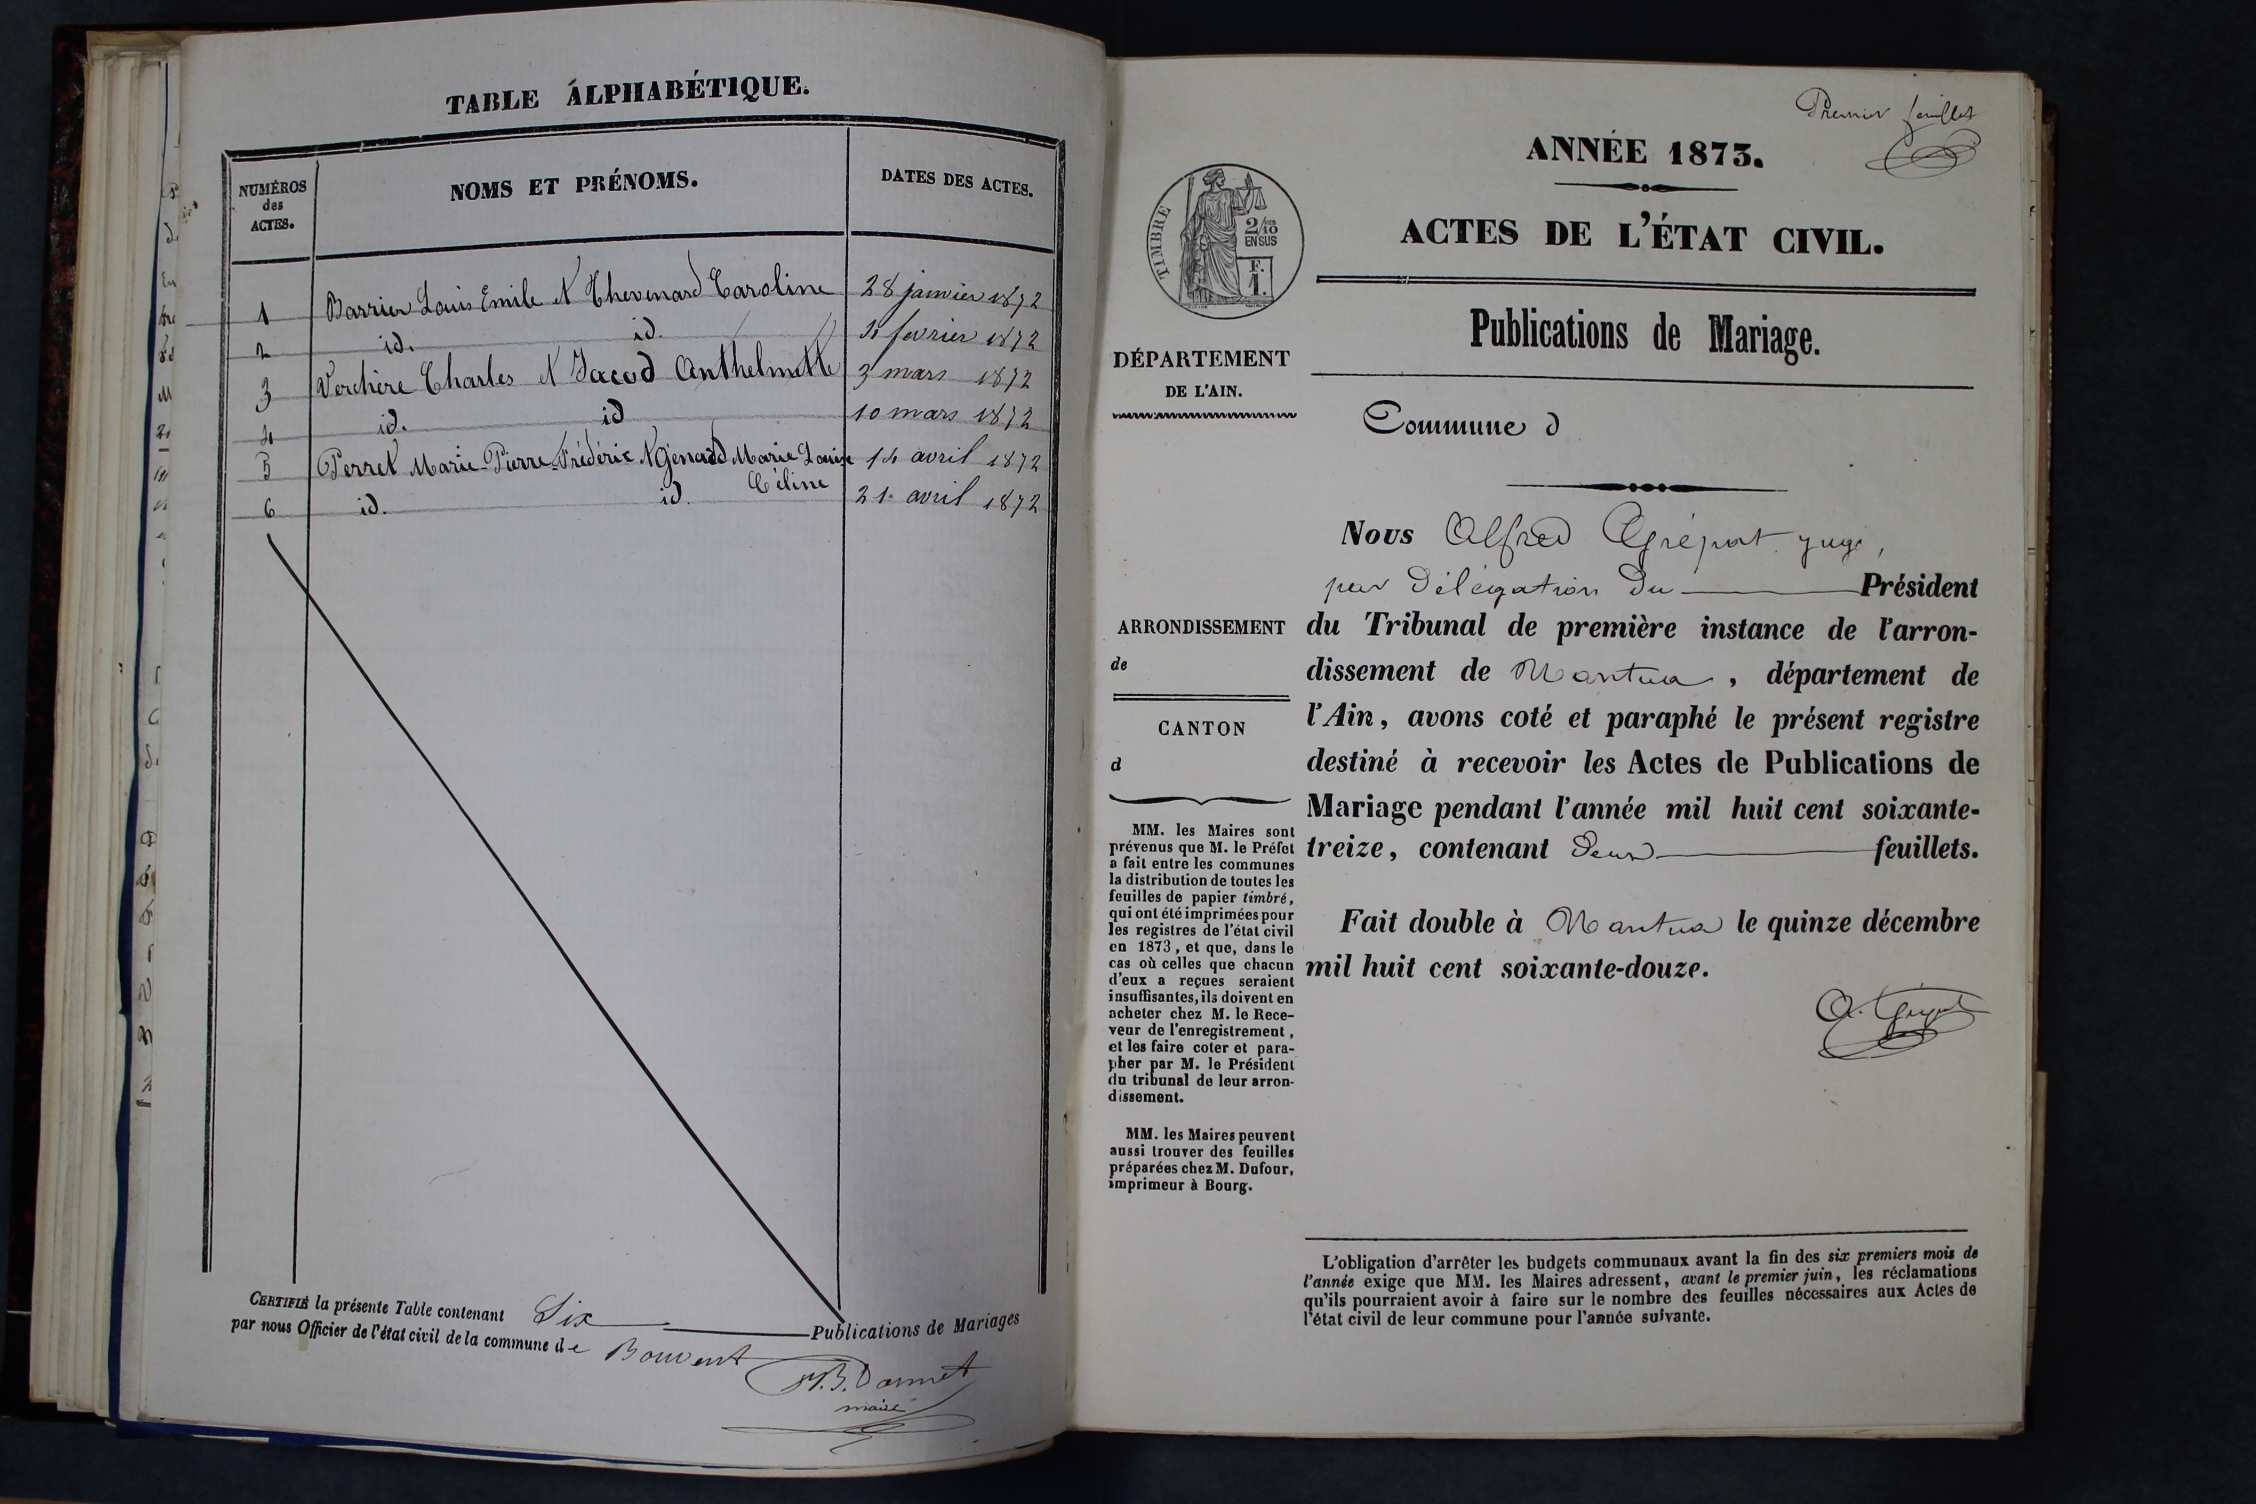 TABLE ALPHABÉTIQUE.
NUMÉROS
des
ACTES.
NOMS ET PRÉNOMS.
DATES DES ACTES.
1 Barrier Louis Emile et Thevenard Caroline 28 janvier 1872
2 id. id. 4 fevrier 1872
3 Verchère Charles et Jacod Anthelmette 3 mars 1872
4 id. id 10 mars 1872
5 Perret Marie-Pierre-Frédéric et Genard Marie Louise 14 avril 1872
Céline
6 id. id. 21 avril 1872
CERTIFIÉ la présente Table contenant Six Publications de Mariages
par nous Officier de l'état civil de la commune de Bouvent
maire
Premier feuillet
ANNÉE 1873.
ACTES DE L'ÉTAT CIVIL.
TIMBRE
2/10
EN SUS
F.
1.
Publications de Mariage.
DÉPARTEMENT
DE L'AIN.
Commune d
ARRONDISSEMENT
de
CANTON
d
MM. les Maires sont
prévenus que M. le Préfet
a fait entre les communes
la distribution de toutes les
feuilles de papier timbré,
qui ont été imprimées pour
les registres de l'état civil
en 1873, et que, dans le
cas où celles que chacun
d'eux a reçues seraient
insuffisantes, ils doivent en
acheter chez M. le Rece-
veur de l'enregistrement,
et les faire coter et para-
pher par M. le Président
du tribunal de leur arron-
dissement.
MM. les Maires peuvent
aussi trouver des feuilles
préparées chez M. Dufour,
imprimeur à Bourg.
Nous Alfred juge,
par Délégation Du Président
du Tribunal de première instance de l'arron-
dissement de Nantua, département de
l'Ain, avons coté et paraphé le présent registre
destiné à recevoir les Actes de Publications de
Mariage pendant l'année mil huit cent soixante-
treize, contenant Deux feuillets.
Fait double à Nantua le quinze décembre
mil huit cent soixante-douze.
L'obligation d'arrêter les budgets communaux avant la fin des six premiers mois de
l'année exige que MM. les Maires adressent, avant le premier juin, les réclamations
qu'ils pourraient avoir à faire sur le nombre des feuilles nécessaires aux Actes de
l'état civil de leur commune pour l'année suivante.